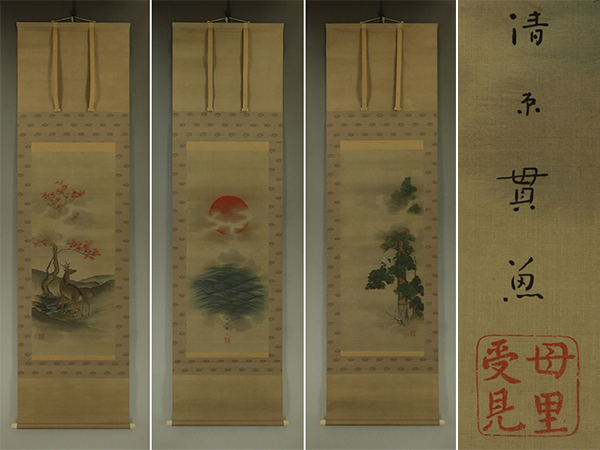 清原貫魚
母里
受見